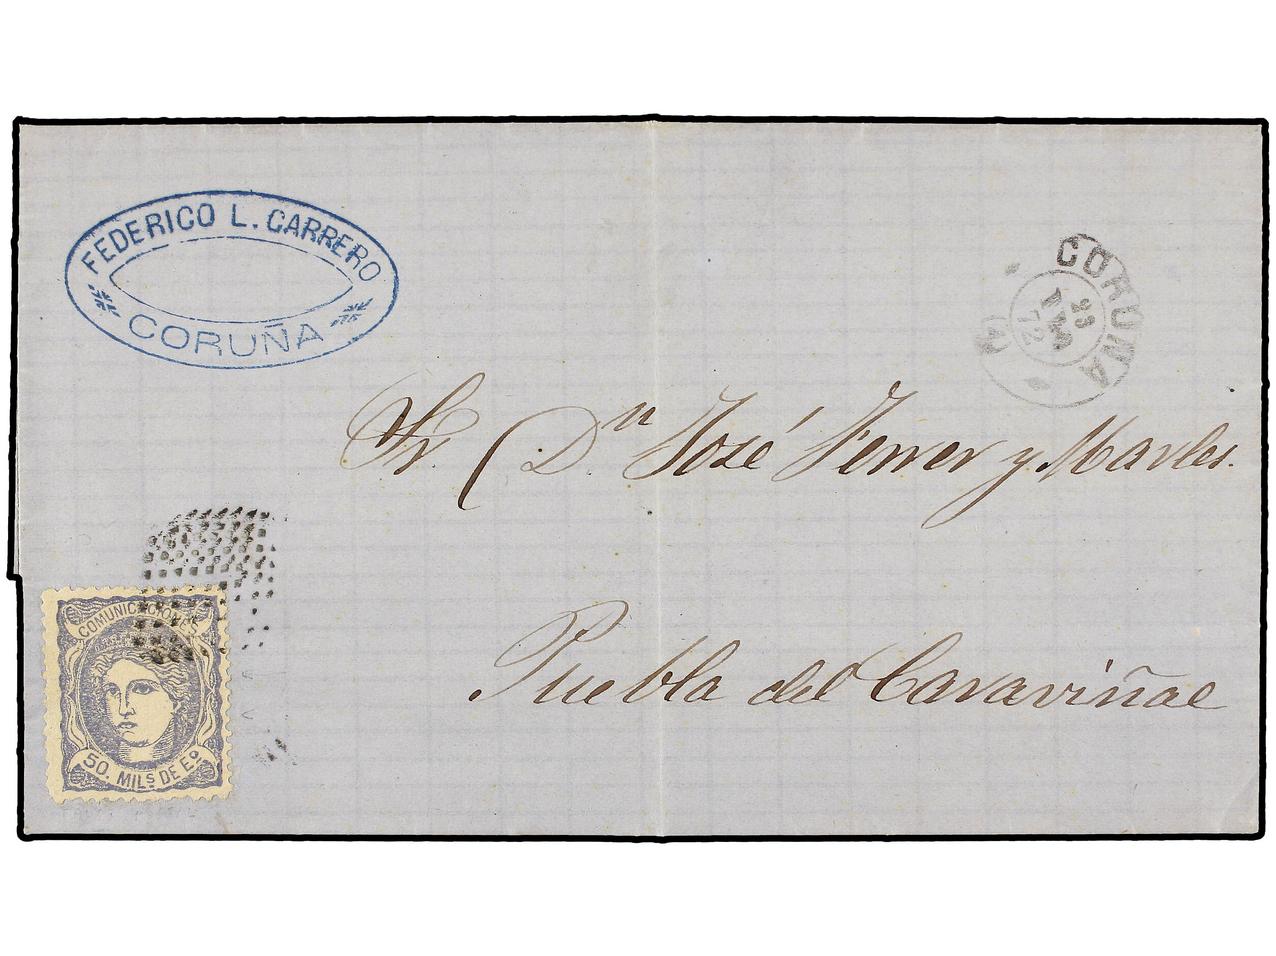 FEDERICO L. CARRERO
CORUÑA
CORUÑA
23
72
(4)
Sr Dn José Ferrer y Marles.
Puebla del Caraviñae
COMUNICACIONES
50. MILS DE Eo